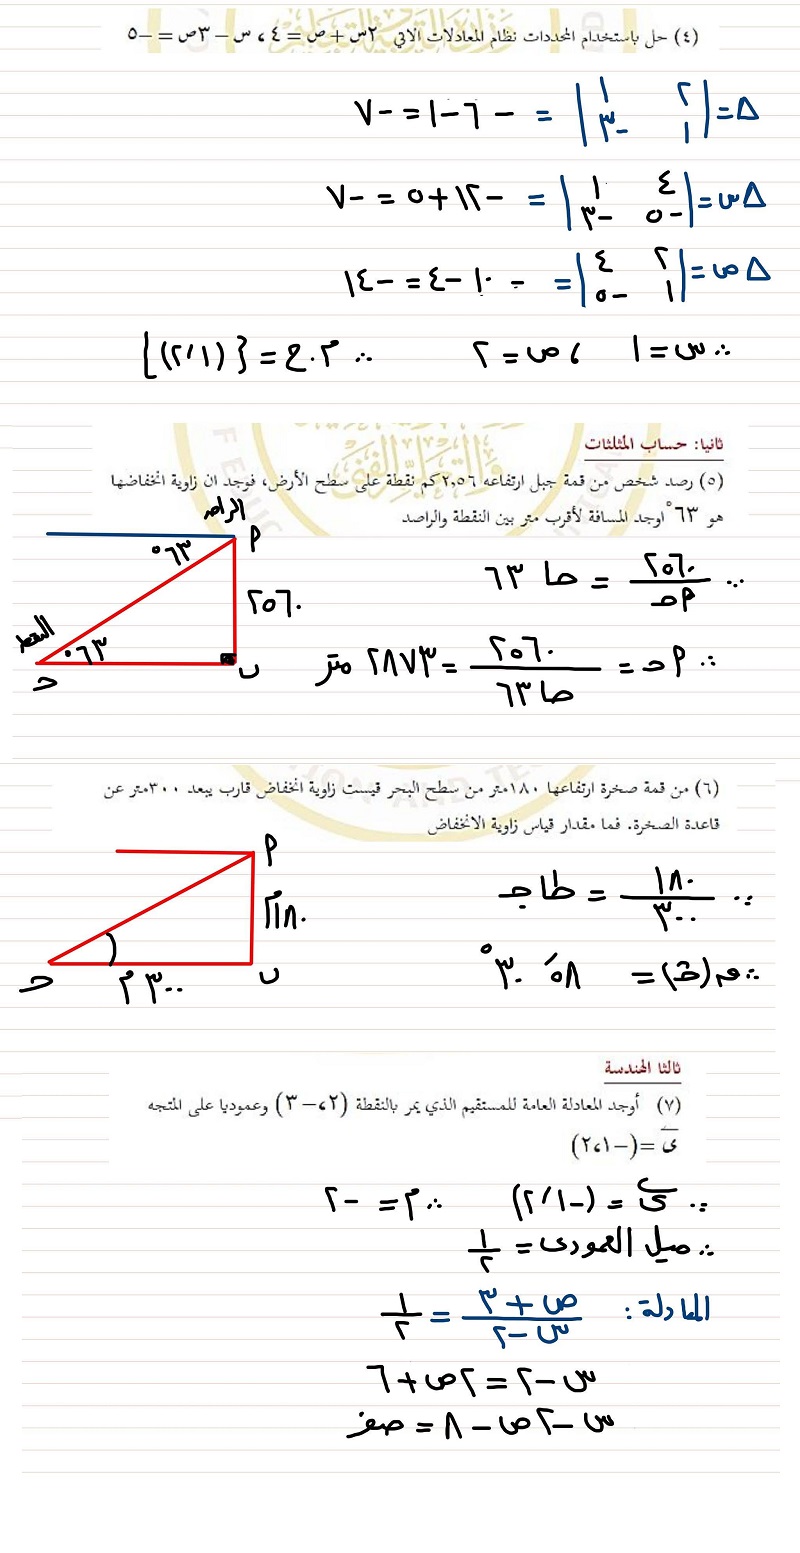 (٤) حل باستخدام المحددات نظام المعادلات الآتي ٢س + ص = ٤ ، س - ٣ص = -٥
∆ = | ٢ ١ ١ -٣ | = -٦ -١ = -٧
∆س = | ٤ ١ -٥ -٣ | = -١٢ + ٥ = -٧
∆ص = | ٢ ٤ ١ -٥ | = -١٠ -٤ = -١٤
∴ س = ١ ، ص = ٢ ∴ م.ح = {(١،٢)}
ثانيا: حساب المثلثات
(٥) رصد شخص من قمة جبل ارتفاعه ٢,٥٦كم نقطة على سطح الأرض، فوجد ان زاوية انخفاضها
هو ٦٣° اوجد المسافة لأقرب متر بين النقطة والراصد
الراصد
٦٣°
٢٥٦٠
النقطة
٦٣°
ب
ح
∵ ٢٥٦٠ / ‏أح = حا ٦٣
∴ ‏أح = ٢٥٦٠ / حا ٦٣ = ٢٨٧٣ متر
(٦) من قمة صخرة ارتفاعها ١٨٠متر من سطح البحر قيست زاوية انخفاض قارب يبعد ٣٠٠متر عن
قاعدة الصخرة. فما مقدار قياس زاوية الانخفاض
١٨٠م
٣٠٠ م
ب
ح
∵ ١٨٠ / ٣٠٠ = طا جـ
∴ ق(حَ) = ٥٨ َ ٣٠ °
ثالثا الهندسة
(٧) أوجد المعادلة العامة للمستقيم الذي يمر بالنقطة (٢، -٣) وعموديا على المتجه
ى = (-١،٢)
∵ ى = (-١،٢) ∴ م = -٢
∴ ميل العمودى = ١/٢
المعادلة: ص + ٣ / س - ٢ = ١/٢
س - ٢ = ٢ص + ٦
س - ٢ص - ٨ = صفر